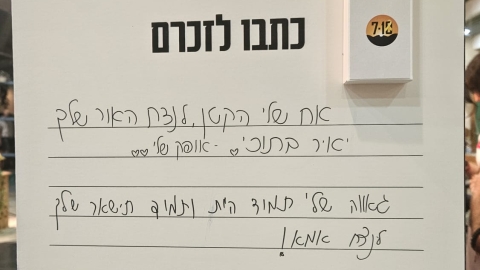 כתבו לזכרם
7.10
אח שלי הקטן, לנצח האור שלך
יאיר בתוכי - אופק שלי
גאווה שלי תמיד היית ותמיד תישאר שלך
לנצח אמא!